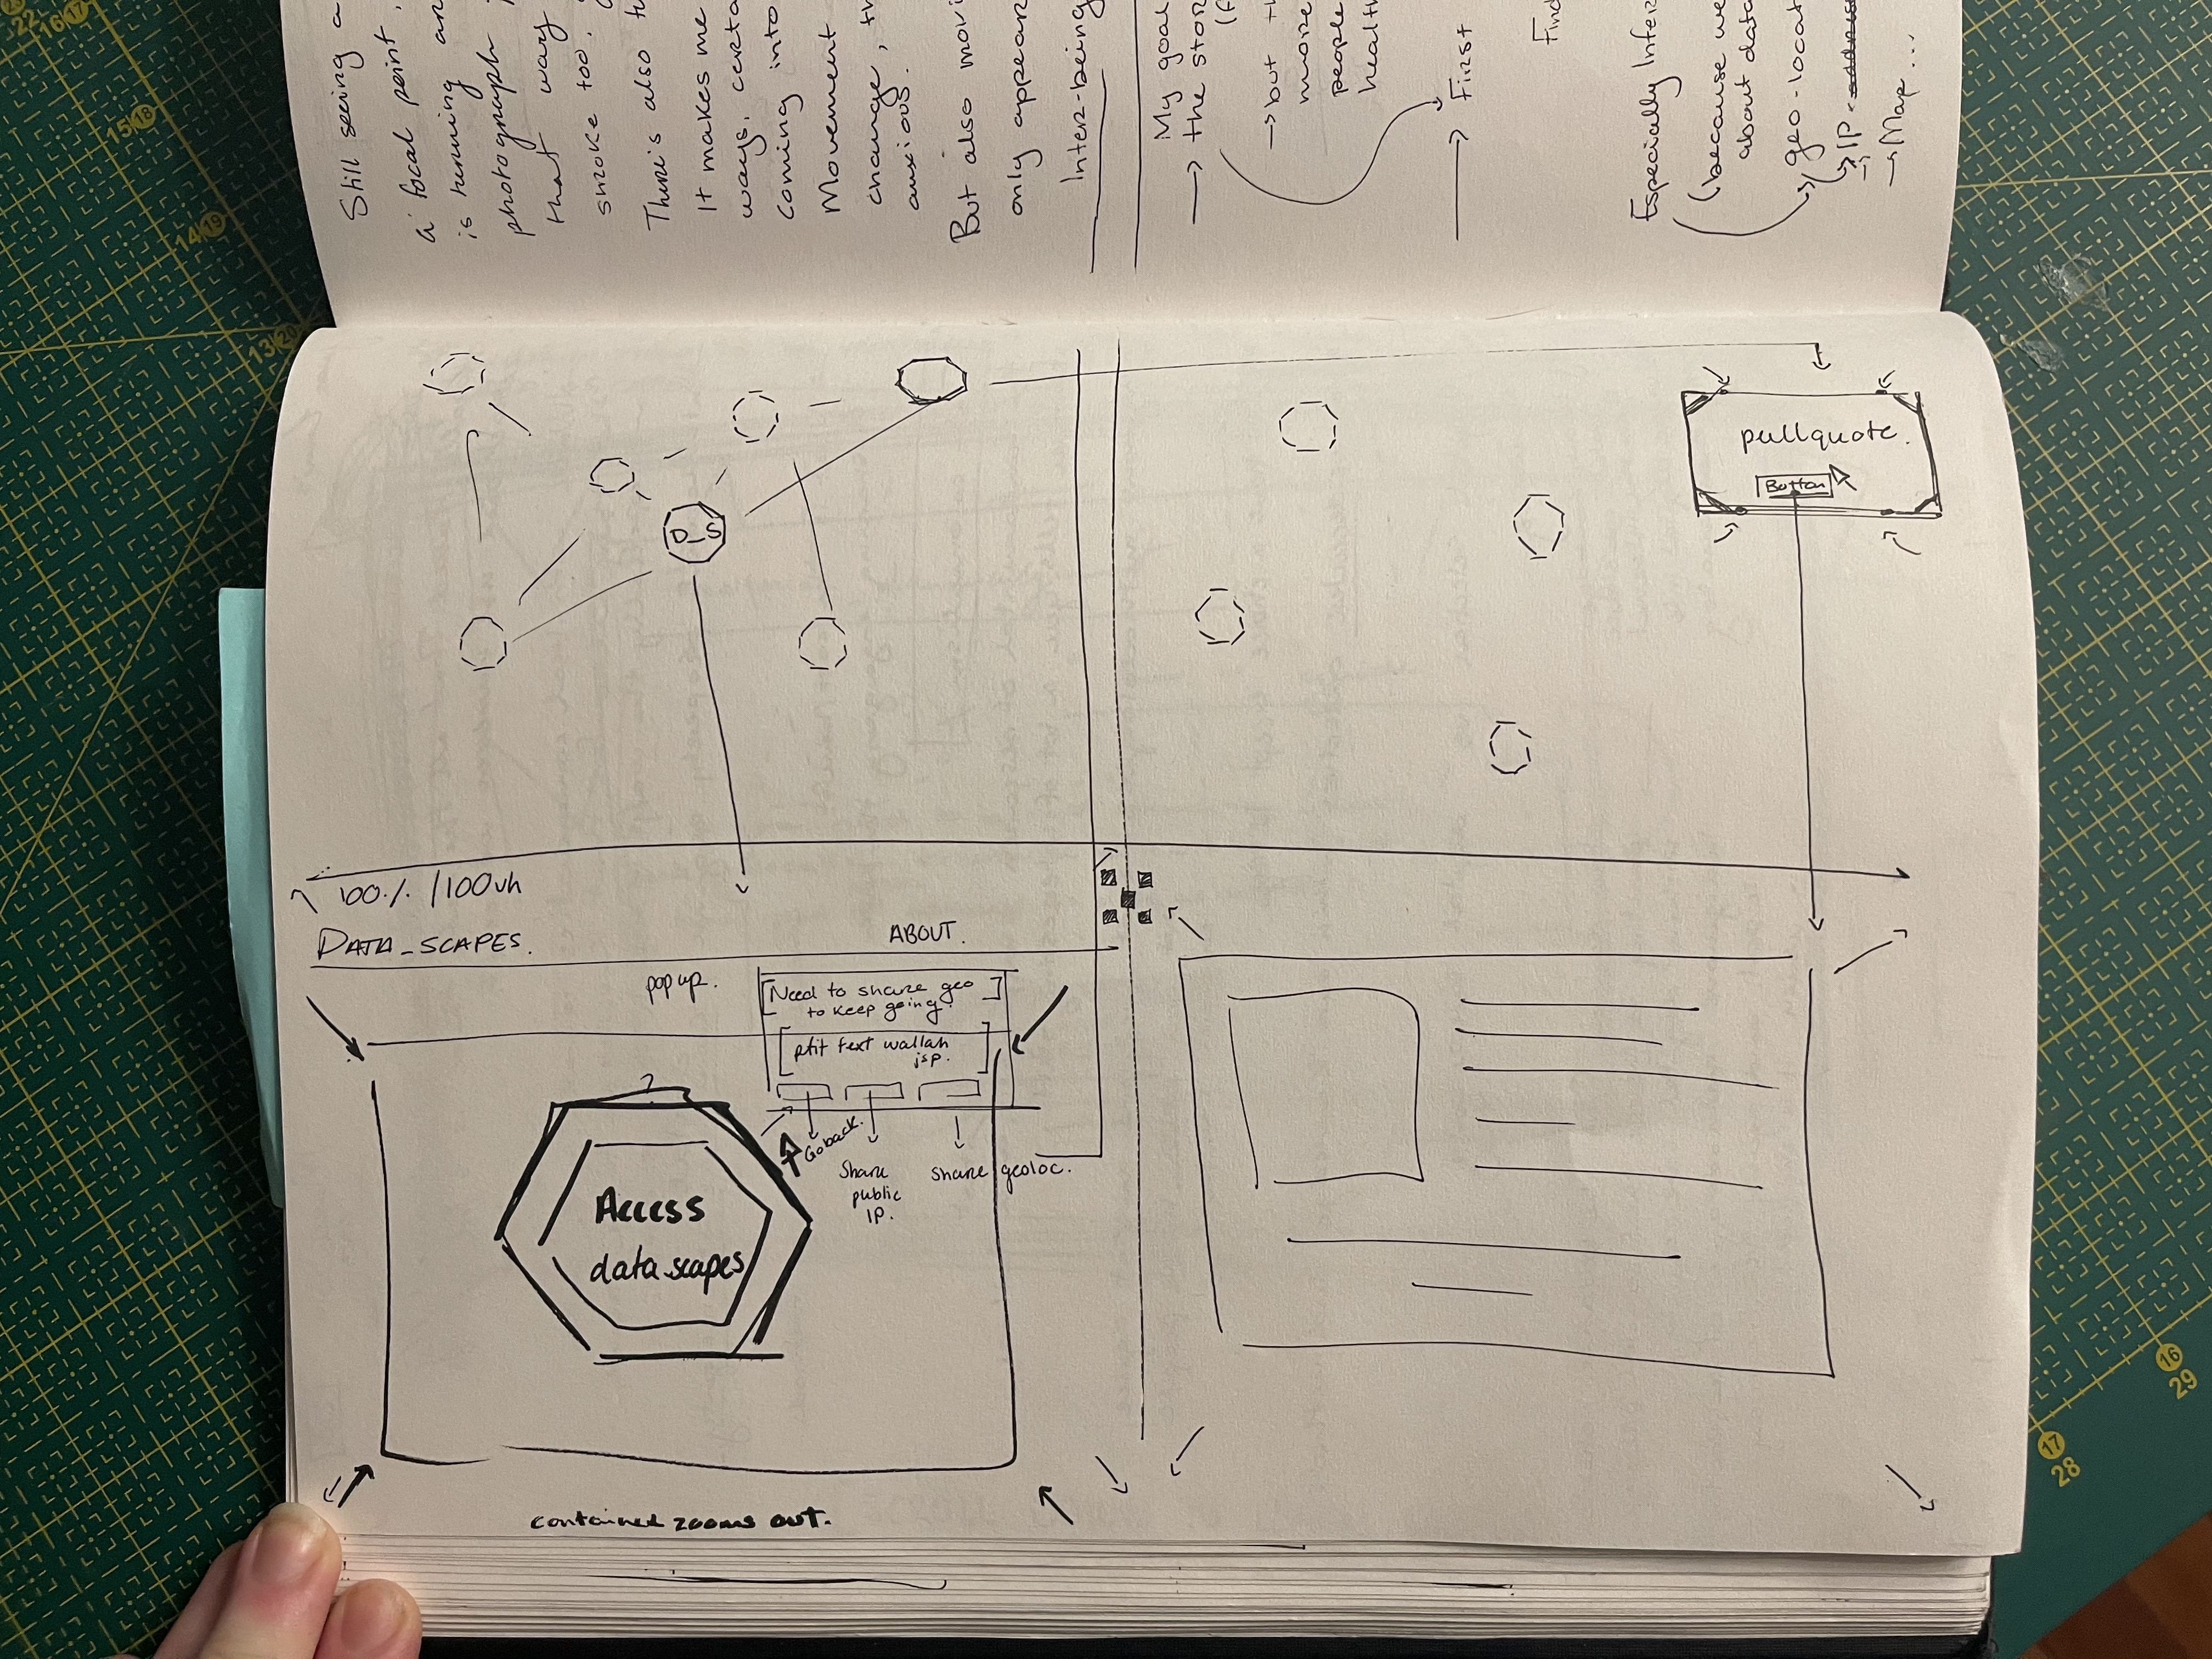 Still seeing a
a focal point,
is running an
photograph i
that way
smoke too.
There's also tw
It makes me
ways, certa
coming into
Movement
change, th
anxious.
But also movi
only appear
Inter-being
My goal
→ the stor
→ but th
more
people
health
→ First
Find
Especially Infer
(because we
about data
geo-locat
→ IP
→ Map....
D_S
pullquote.
Button
100% /100vh
DATA_SCAPES.
ABOUT.
pop up.
[Need to share geo
to keep going.]
[ptit text wallah
jsp.]
Go back.
Share
public
IP.
share geoloc.
Access
data_scapes
contained zooms out.
13 20
14 19
15 18
16 17
22
16
29
17
28